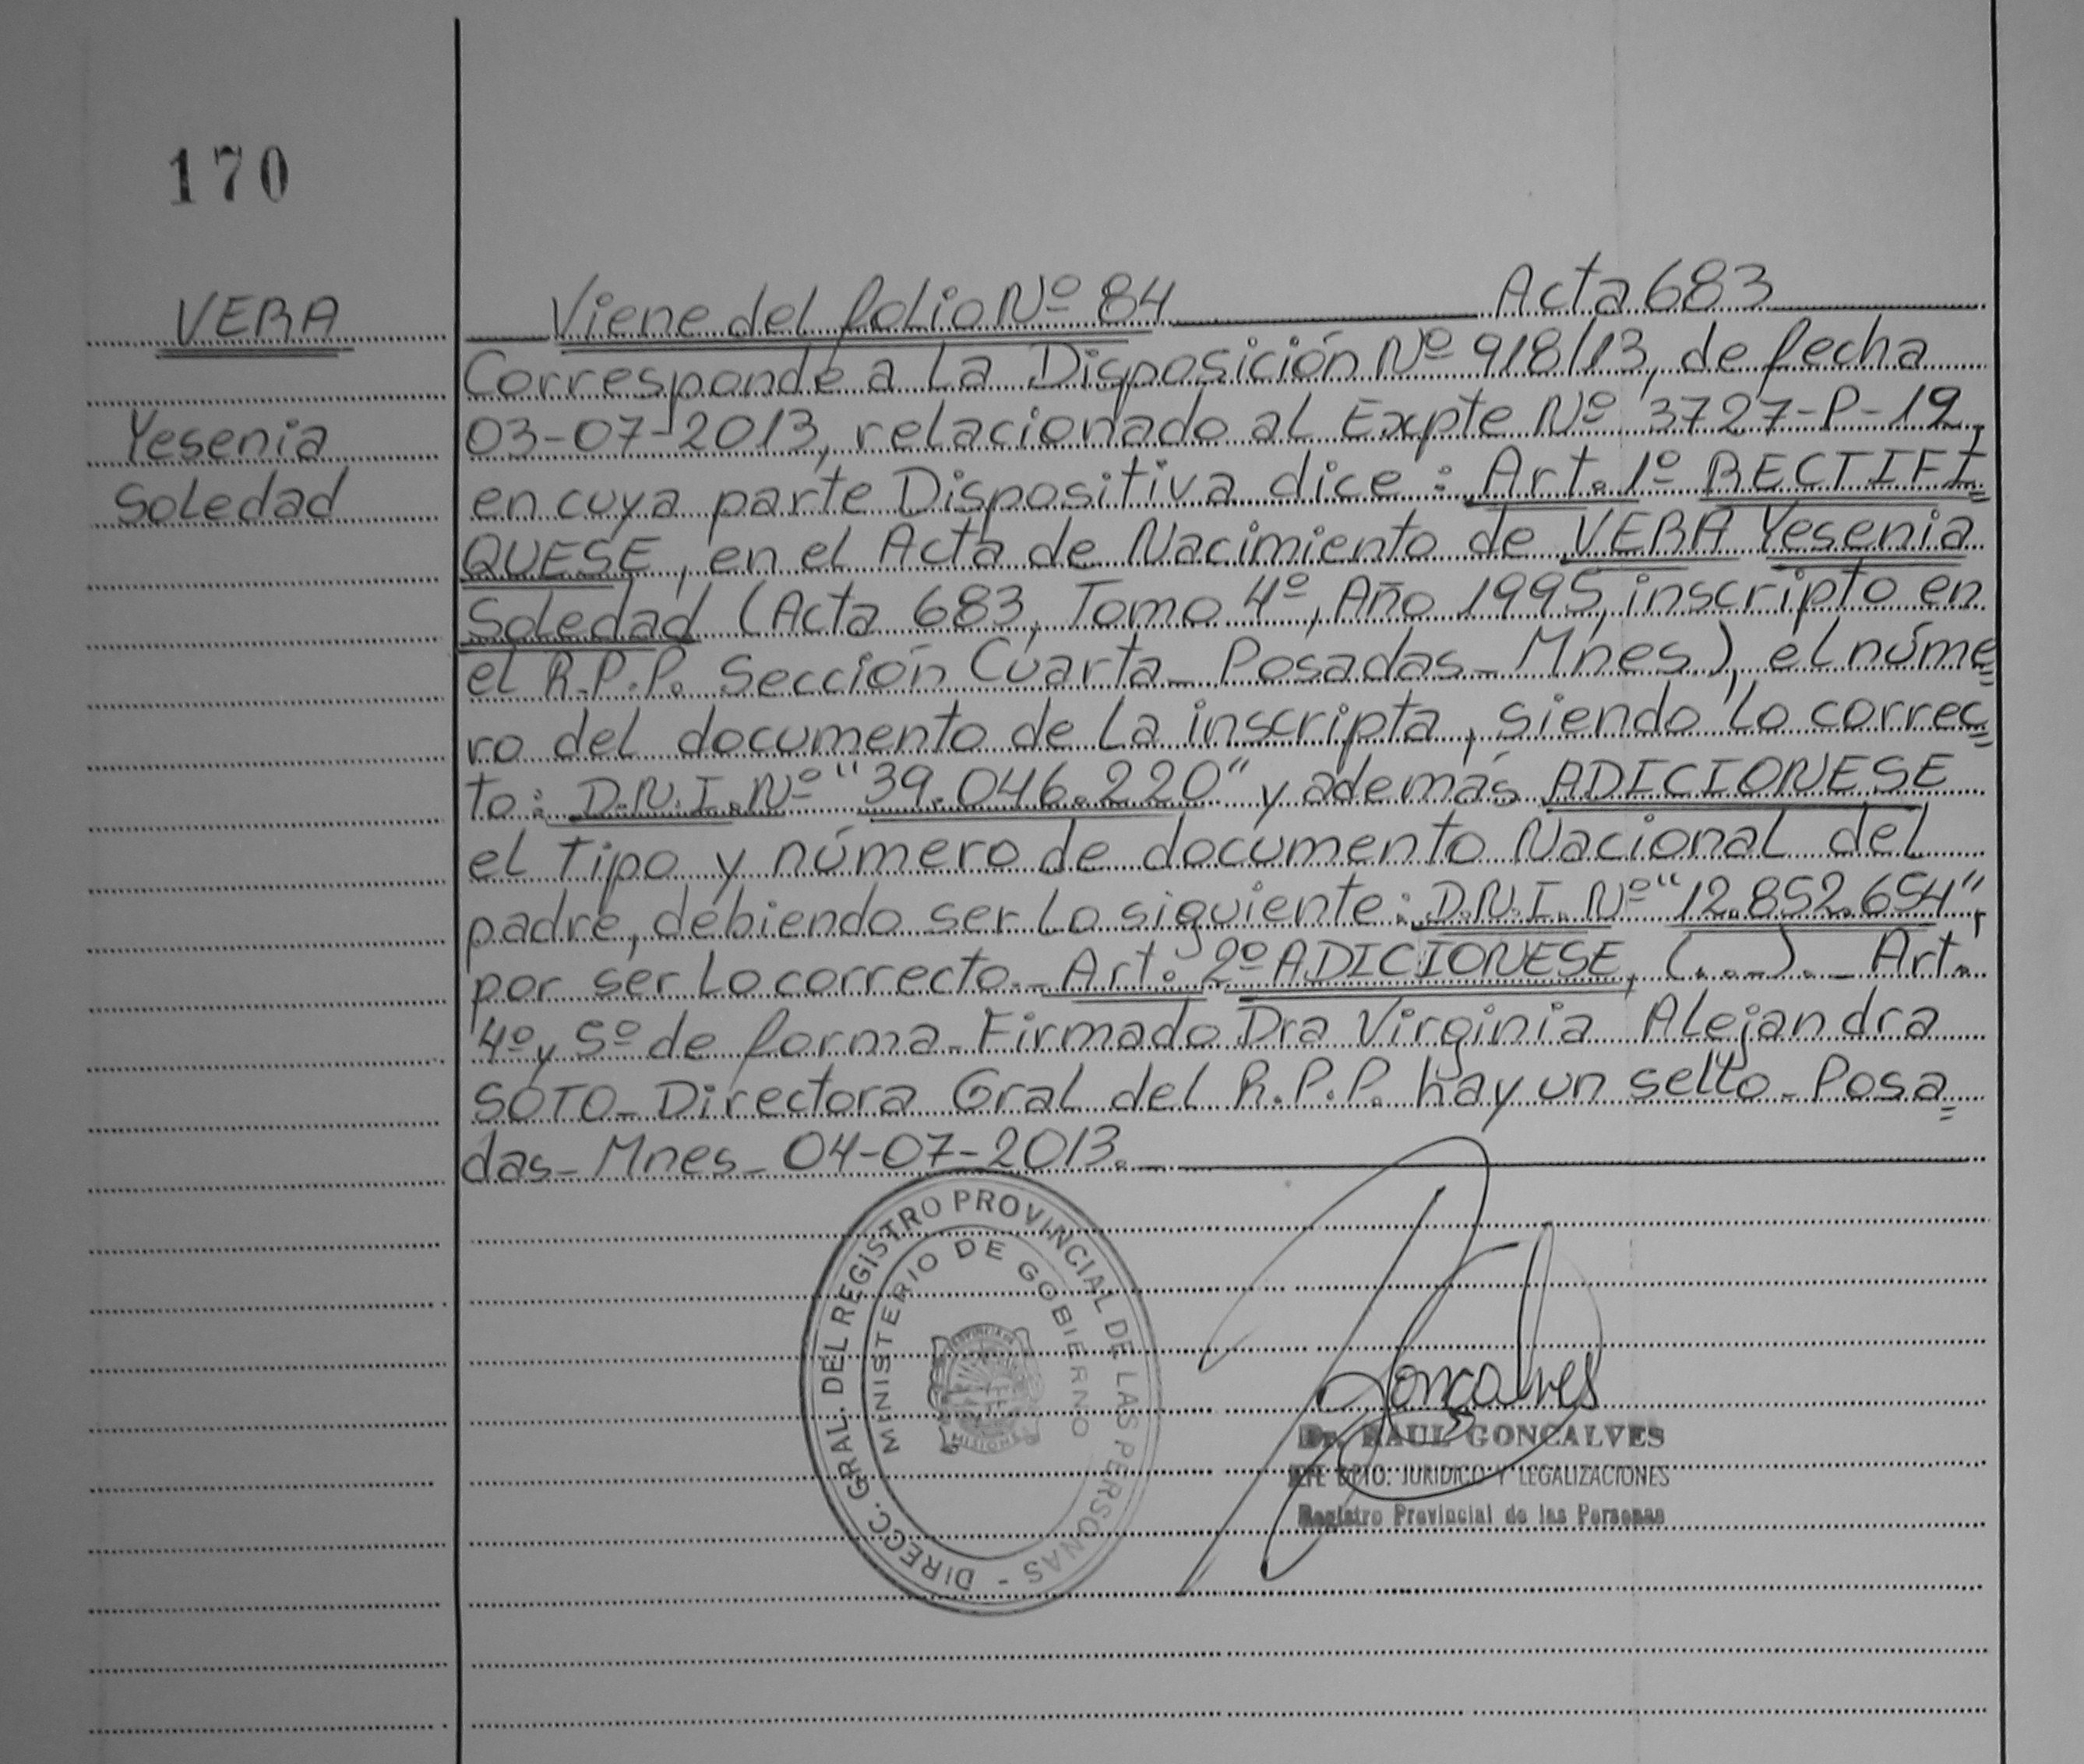 170
VERA
Yesenia
Soledad
Viene del folio Nº 84 Acta 683
Corresponde a la Disposición Nº 918/13, de fecha
03-07-2013, relacionado al Expte Nº 3727-P-12,
en cuya parte Dispositiva dice: Art. 1º RECTIFI=
QUESE, en el Acta de Nacimiento de VERA Yesenia
Soledad (Acta 683, Tomo 4º, Año 1995, inscripto en
el R.P.P. Sección Cuarta - Posadas - Mnes), el núme=
ro del documento de la inscripta, siendo lo correc=
to: D.N.I. Nº "39.046.220" y además ADICIONESE
el tipo y número de documento Nacional del
padre, debiendo ser lo siguiente: D.N.I. Nº "12.852.654",
por ser lo correcto.- Art. 2º ADICIONESE, (...).- Art.
4º y 5º de forma - Firmado Dra Virginia Alejandra
SOTO - Directora Gral del R.P.P. hay un sello - Posa=
das - Mnes - 04-07-2013.-
DIRECC. GRAL. DEL REGISTRO PROVINCIAL DE LAS PERSONAS -
MINISTERIO DE GOBIERNO
PROVINCIA DE
MISIONES
Gonçalves
Dr. RAUL GONCALVES
JEFE DPTO. JURIDICO Y LEGALIZACIONES
Registro Provincial de las Personas